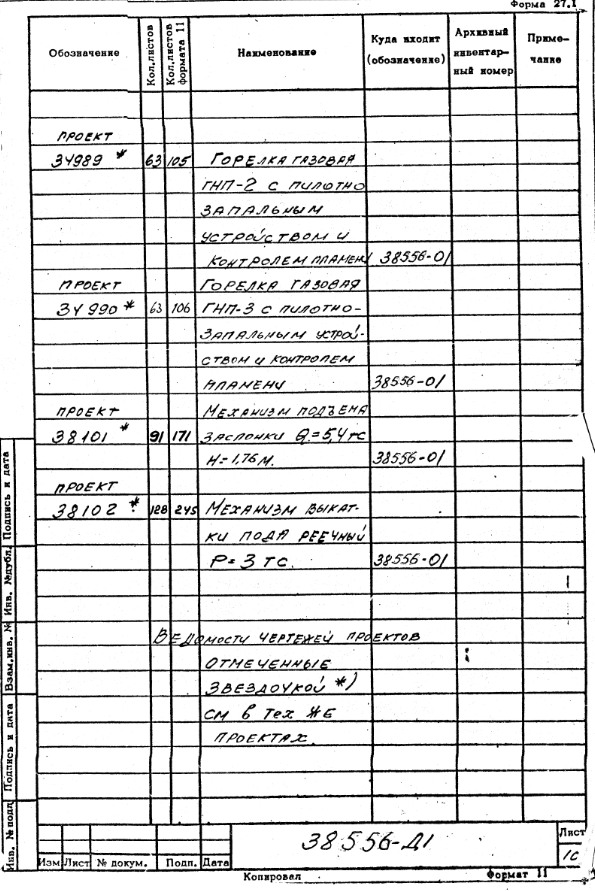 Форма 27.1
Обозначение
Кол.листов
Кол.листов формата 11
Наименование
Куда входит (обозначение)
Архивный инвентарный номер
Примечание
ПРОЕКТ
34989 * 63 105 ГОРЕЛКА ГАЗОВАЯ
ГНП-2 С ПИЛОТНО
ЗАПАЛЬНЫМ
УСТРОЙСТВОМ И
КОНТРОЛЕМ ПЛАМЕНИ 38556-01
ПРОЕКТ ГОРЕЛКА ГАЗОВАЯ
34990 * 63 106 ГНП-3 С ПИЛОТНО-
ЗАПАЛЬНЫМ УСТРОЙ-
СТВОМ И КОНТРОЛЕМ
ПЛАМЕНИ 38556-01
ПРОЕКТ МЕХАНИЗМ ПОДЪЕМА
38101 * 91 171 ЗАСЛОНКИ Q=5,4 ТС
Н=1,76 М. 38556-01
ПРОЕКТ
38102 * 128 245 МЕХАНИЗМ ВЫКАТ-
КИ ПОДА РЕЕЧНЫЙ
Р=3 ТС. 38556-01
ВЕДОМОСТИ ЧЕРТЕЖЕЙ ПРОЕКТОВ
ОТМЕЧЕННЫЕ
ЗВЕЗДОЧКОЙ *)
СМ В ТЕХ ЖЕ
ПРОЕКТАХ.
Инв. № подл Подпись и дата Взам.инв. № Инв. №дубл. Подпись и дата
Изм Лист № докум. Подп. Дата
38556-Д1
Лист
1С
Копировал Формат 11